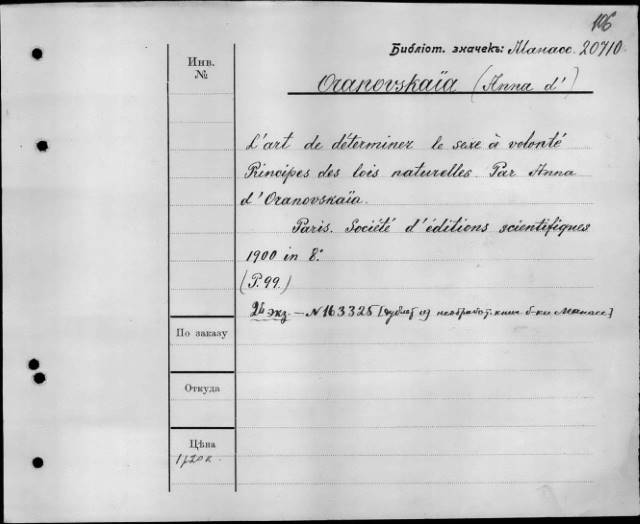 106
Библіот. значекъ: Манасс. 20710.
Инв.
№
Oranovskaïa (Anna d')
L'art de déterminer le sexe à volonté
Principes des lois naturelles. Par Anna
d'Oranovskaïa.
Paris. Société d'éditions scientifiques
1900 in 8°
(P. 99.)
2й экз. – № 163325 [дублет из необработ. книг б-ки Манассе]
По заказу
Откуда
Цѣна
1р20к.